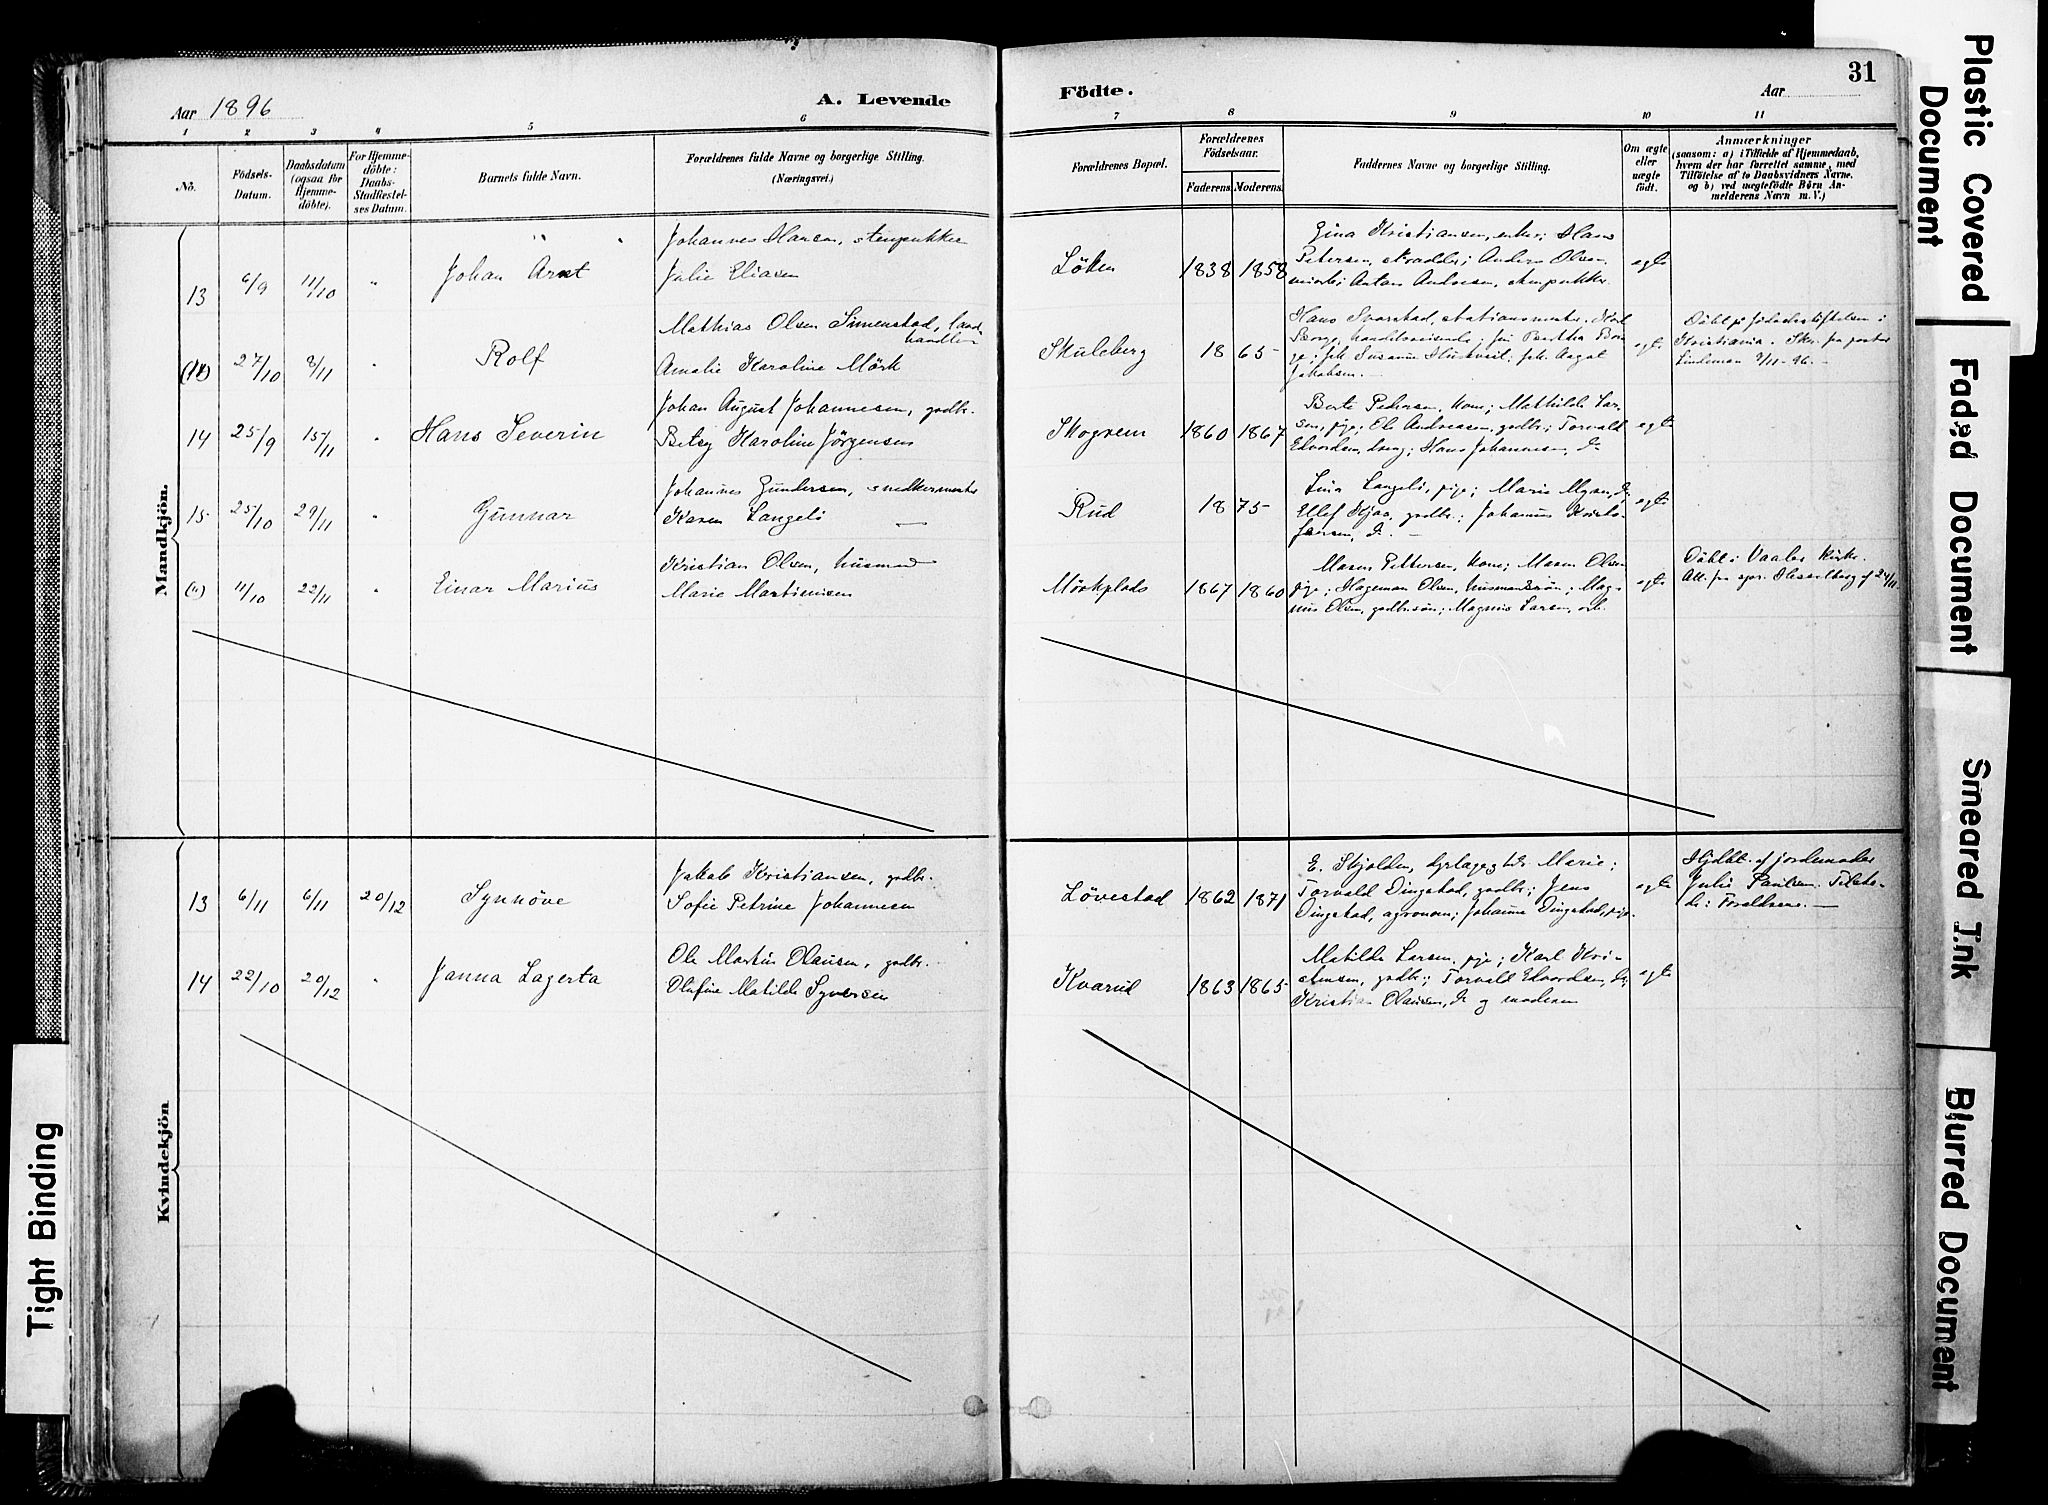 Aar 1896
A. Levende
Födte.
Aar
31
1 2 3 4 5 6 7 8 9 10 11
No.
Födsels-Datum.
Daabsdatum (ogsaa for Hjemmedöbte).
For Hjemmedöbte: Daabs-Stadfæstelses Datum.
Barnets fulde Navn.
Forældrenes fulde Navne og borgerlige Stilling. (Næringsvei.)
Forældrenes Bopæl.
Forældrenes Födselsaar.
Faderens. Moderens.
Faddernes Navne og borgerlige Stilling.
Om ægte eller uægte födt.
Anmærkninger
(saasom: a) i Tilfælde af Hjemmedaab, hvem der har forrettet samme, med Tilföielse af to Daabsvidners Navne, og b) ved uægtefödte Börn Anmelderens Navn m. V.)
Mandkjön.
13 6/9 11/10 " Johan Arnt
Johannes Hansen, stenpukker
Julie Eliasen
Löken 1838 1858
Gina Kristiansen, enke; Hans
Petersen, skrædder; Anders Olsen,
Anton Andresen, stenpukker.
egte
(14) 27/10 8/11 " Rolf
Mathias Olsen Simenstad, landhandler
Amalie Karoline Mörk
Skuleberg 1865
Hans Svarstad, stationsmester,
Borge, handelsreisende; fru Bertha Borge; frk. Susanne frk. Aagot
Jakobsen.
egte
Döbt på födselsstiftelsen i
Kristiania. Skr. fra pastor
Lindeman 9/11-96.
14 25/9 15/11 " Hans Severin
Johan August Johannesen, gadbr.
Betsy Karoline Jörgensen
Skogrem 1860 1867
Berte Pedersen, kone; Mathilde Larsen, pige; Ole Andreassen, gadbr.; Torvald
Edvardsen, dreng; Hans Johannesen, do
egte
15 25/10 29/11 " Gunnar
Johannes Gundersen, snedkermester
Karen Langeli
Rud 1875
Lina Langeli, pige; Marie Mysen, do;
Ellef Skjaa, gadbr.; Johannes Kristofersen, do.
egte
(") 11/10 22/11 " Einar Marius
Kristian Olsen, husmand
Marie Martinisen
Mörkplads 1867 1860
Maren Pettersen, kone; Maren Olsen
pige; Hageman Olsen, husmandssön; Magnus Olsen, gadbr.sön; Magnus Larsen, arb.
egte
Döbt i Vaaler kirke.
Att. fra spr. Hesselberg af 24/11.
Kvindekjön
13 6/11 6/11 20/12 Synnöve
Jakob Kristiansen, gadbr.
Sofie Petrine Johannesen
Lövestad 1862 1871
E. Skjolden, dyrlæge, Marie;
Torvald Dingstad, gadbr.; Jens
Dingstad, agronom; Johanne Dingstad, pige.
egte
Hjdbt. af jordemoder
Julie Paulsen. Tilstede: Forældrene.
14 22/10 20/12 " Janna Lagerta
Ole Martin Olausen, gadbr.
Olufine Matilde Syversen
Kvarud 1863 1865
Matilde Larsen, pige; Karl Kristensen, gadbr.; Torvald Edvardsen, do;
Kristian Olausen, do og moderen
egte
Plastic Covered Document
Faded Document
Smeared Ink
Blurred Document
Tight Binding